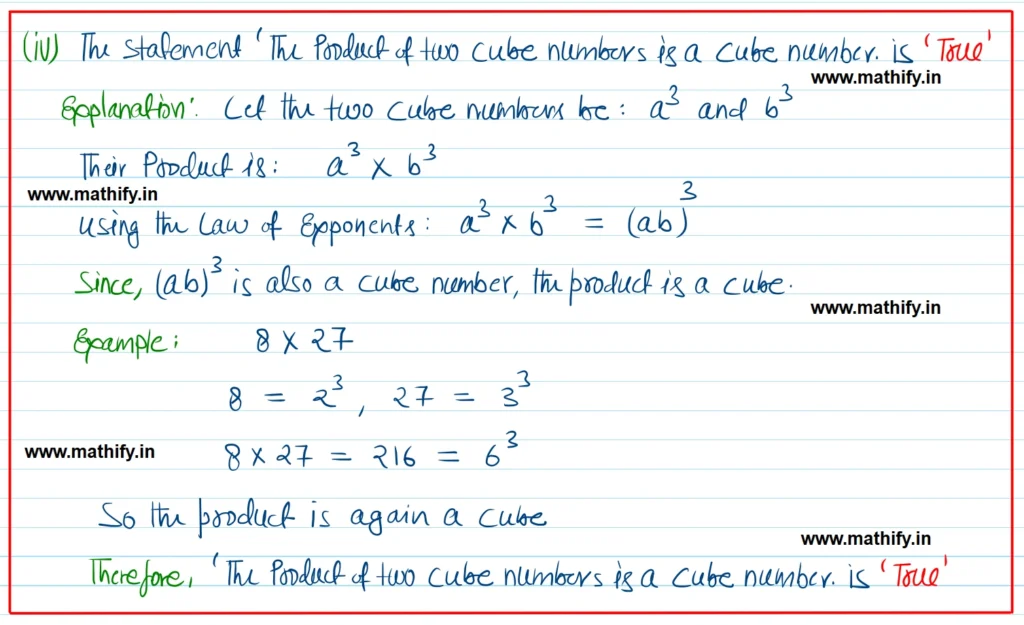 (iv) The statement 'The Product of two cube numbers is a cube number. is 'True'
www.mathify.in
Explanation: Let the two cube numbers be: a³ and b³
Their Product is: a³ × b³
www.mathify.in
Using the Law of Exponents: a³ × b³ = (ab)³
Since, (ab)³ is also a cube number, the product is a cube.
www.mathify.in
Example: 8 × 27
8 = 2³, 27 = 3³
www.mathify.in 8 × 27 = 216 = 6³
So the product is again a cube
www.mathify.in
Therefore, 'The Product of two cube numbers is a cube number. is 'True'